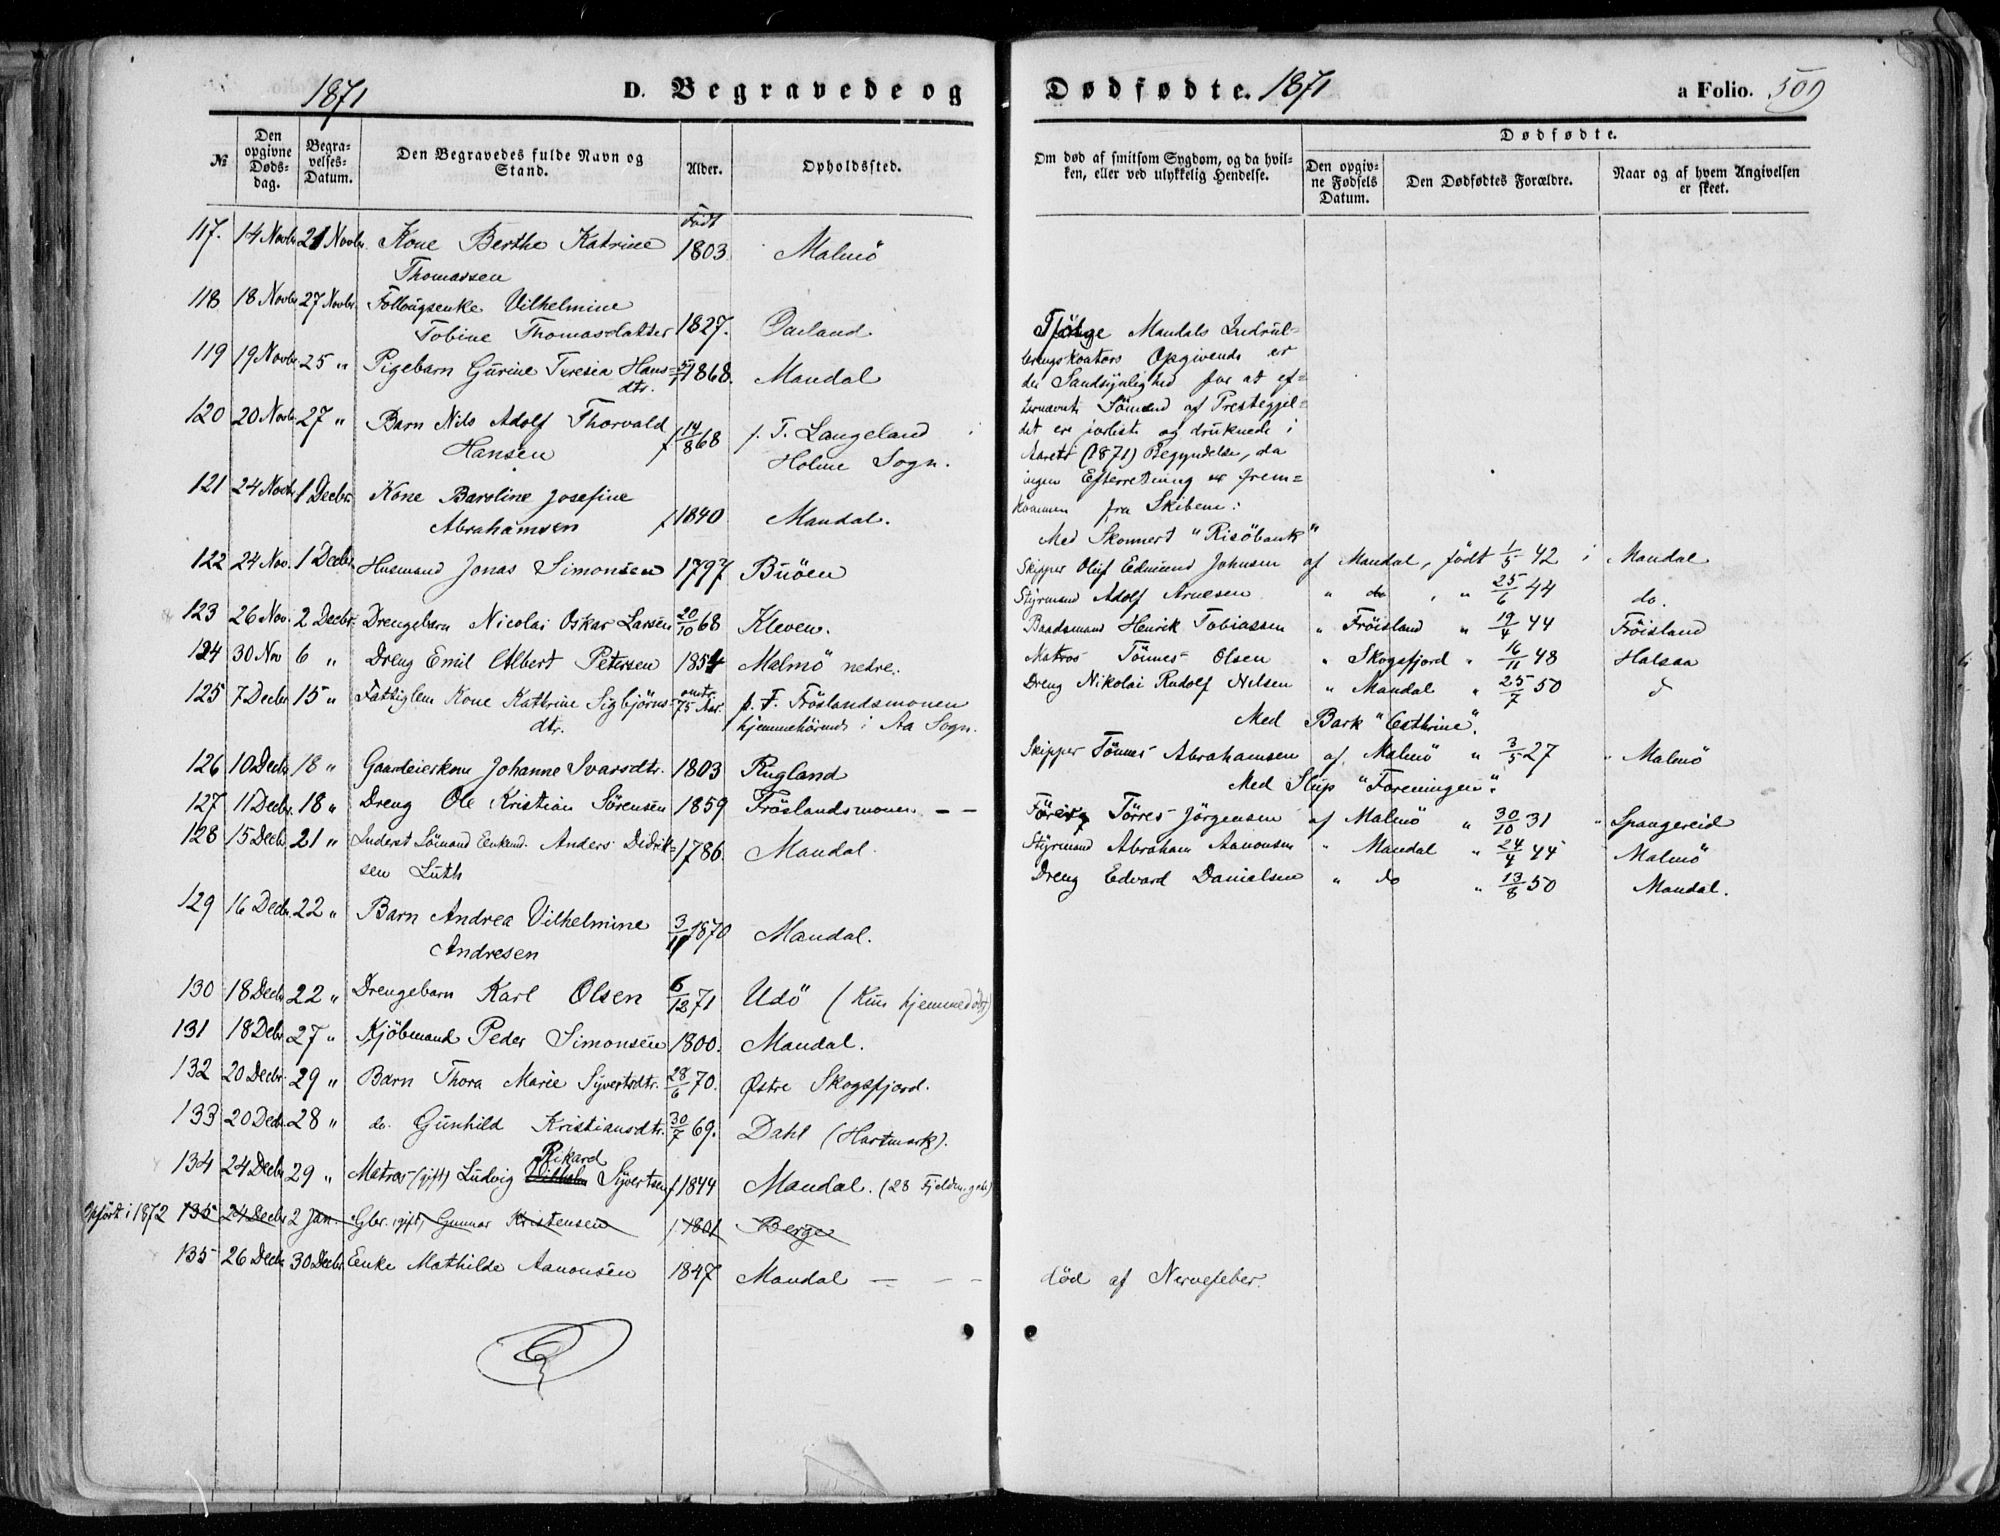 1871 D. Begravede og
№ Den opgivne Døds-dag. Begra-velses-Datum. Den Begravedes fulde Navn og Stand. Alder. Opholdssted.
Født
117. 14 Novbr 21 Novbr. Kone Berthe Katrine 1803 Malmö
Thomassen
118 18 Novbr 27 Novbr. Follougsenke Vilhelmine
Tobine Thomasdatter 1827. Oarland
119 19 Novbr. 25 " Pigebarn Gurine Teresia Hans= 5/1 1868. Mandal
dtr.
120 20 Novbr 27 " Barn Nils Adolf Thorvald
Hansen f 14/8 68 p. T. Langeland i
Holme Sogn.
121 24 Novbr 1 Decbr. Kone Baroline Josefine
Abrahamsen f 1840 Mandal.
122 24 Nov. 1 Decbr. Husmand Jonas Simonsen 1797 Buöen
123 26 Nov. 2 Decbr. Drengebarn Nicolai Oskar Larsen 20/10 68 Kleven.
124 30 Nov 6 " Dreng Emil Albert Petersen 1854 Malmö nedre.
125 7 Decbr 15 " Fattiglem Kone Kathrine Sigbjörns- omtr. 75 Aar. p. T. Fröslandsmonen
dtr. hjemmehörende i Aa Sogn.
126 10 Decbr 18 " Gaardeierkone Johanne Ivarsdtr. 1803 Rugland
127 11 Decbr. 18 " Dreng Ole Kristian Sörensen 1859 Fröslandsmonen – –
128 15 Decbr. 21 " Inderst Sömand Enkemd. Anders Didrik= 1786. Mandal.
sen Luth
129 16 Decbr. 22 " Barn Andrea Vilhelmine 3/11 1870 Mandal.
Andresen
130 18 Decbr 22 " Drengebarn Karl Olsen 6/12 71 Udö (Kun hjemmedöbt)
131 18 Debr. 27 " Kjöbmand Peder Simonsen 1800. Mandal.
132 20 Decbr. 29 " Barn Thora Marie Syvertsdtr. 28/6 70. Østre Skogsfjord.
133 20 Decbr. 28 " do. Gunhild Kristiansdtr. 30/7 69. Dahl (Hartmark).
Rikard
134 24 Decbr 29 " Matros (gift) Ludvig Vilhelm Syvertsen f 1844 Mandal.
Opfört i 1872 135 24 Decbr 2 Jan. Gbr. (gift) Gunnar Kristensen 1801 Berge
135 26 Decbr 30 Decbr. Enke Mathilde Aanonsen 1847 Mandal – – –
Dødfødte. 1871 a Folio. 509
Om død af smitsom Sygdom, og da hvil-ken, eller ved ulykkelig Hendelse. Dødfødte.
Den opgiv-ne Fødsels Datum. Den Dødfødtes Forældre. Naar og af hvem Angivelsen er skeet.
Ifölge Mandals Indrul-
leringskontors Opgivende er
der Sandsynlighed for at ef=
ternævnte Sömænd af Prestegjel=
det ere forliste og druknede i
Aarets (1871) Begyndelse, da
ingen Efterretning er frem=
kommen fra Skibene:
Med Skonnert "Risöbank"
Skipper Oluf Edmund Johnsen af Mandal, födt 1/5 42 i Mandal
Styrmand Adolf Arnesen " do , " 25/6 44 do.
Baadsmand Henrik Tobiassen " Fröisland " 19/4 44 Fröisland
Matros Tönnes Olsen " Skogsfjord " 16/11 48 Halsaa
Dreng Nikolai Rudolf Nilsen " Mandal " 25/7 50 d
Med Bark "Cathrine".
Skipper Tönnes Abrahamsen af Malmö " 3/5 27 " Malmö
Med Slup "Foreningen".
Förer Törres Jörgensen af Malmö " 30/10 31 " Spangereid
Styrmand Abraham Aanonsen " Mandal " 24/4 44 Malmö
Dreng Edvard Danielsen " do " 13/8 50 Mandal.
död af Nervefeber.